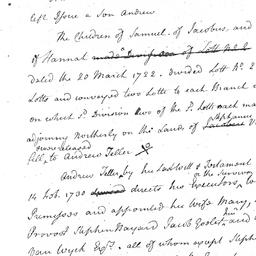 left Issue a Son Andrew
The Children of Samuel. of Jacobus, and
of Hannah made a Division of Lott No 2
dated the 20 March 1722. divided Lott No 2
Lotts and conveyed two Lotts to each Branch
on which sd Division two of the sd Lotts each
adjoining Northerly on the Lands of Stephanus V
were released
to Andrew Teller
Andrew Teller by his Last Will & Testament
14 Feb. 1730 directs his Executors or the Survivor
Premisses and appointed his Wife Mary,
Provost Stephen Bayard Jacob Goelet and his
Van Wyck Esqr. all of whom except Steph